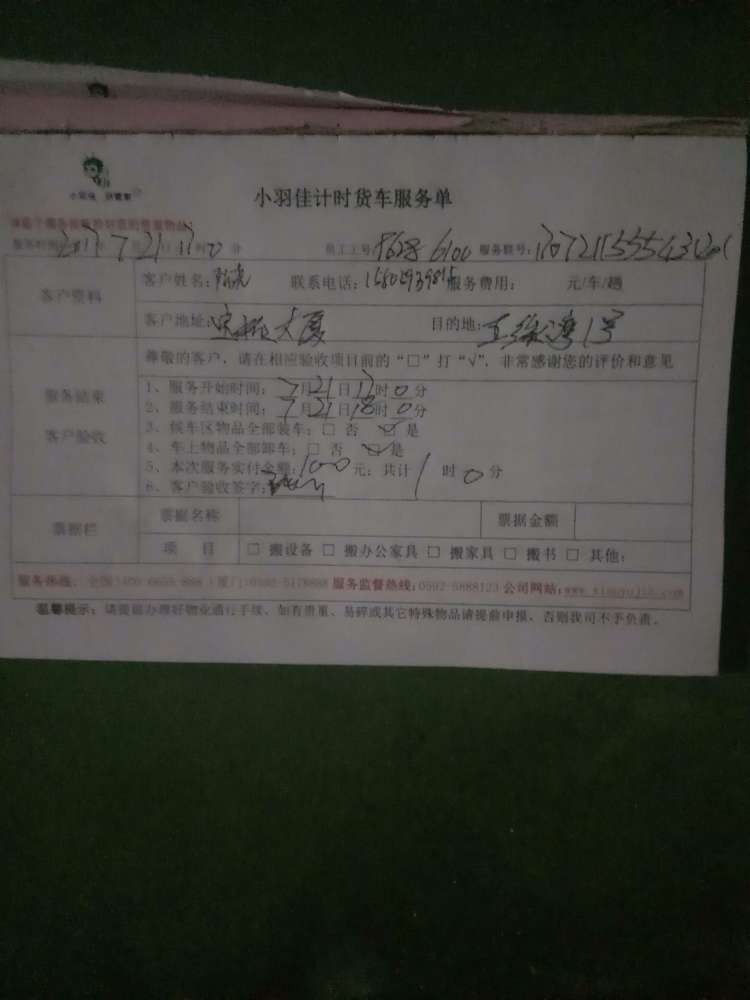 小羽佳
小羽佳计时货车服务单
服务时间：2017年7月21日17时0分 员工工号 服务联号：
客户资料
客户姓名： 联系电话： 服务费用： 元/车/趟
客户地址： 大厦 目的地： 湾1号
尊敬的客户，请在相应验收项目前的“□”打“√”，非常感谢您的评价和意见
服务结束
客户验收
1、服务开始时间：7月21日17时0分
2、服务结束时间：7月21日18时0分
3、候车区物品全部装车：□ 否 ☑ 是
4、车上物品全部卸车：□ 否 ☑ 是
5、本次服务实付金额：100元；共计1时0分
6、客户验收签字：
票据栏
票据名称 票据金额
项 目 □ 搬设备 □ 搬办公家具 □ 搬家具 □ 搬书 □ 其他：
服务热线： 服务监督热线：0592-5888123 公司网站：www.xiaoyujia.com
温馨提示：请提前办理好物业通行手续，如有贵重、易碎或其它特殊物品请提前申报，否则我司不予负责。